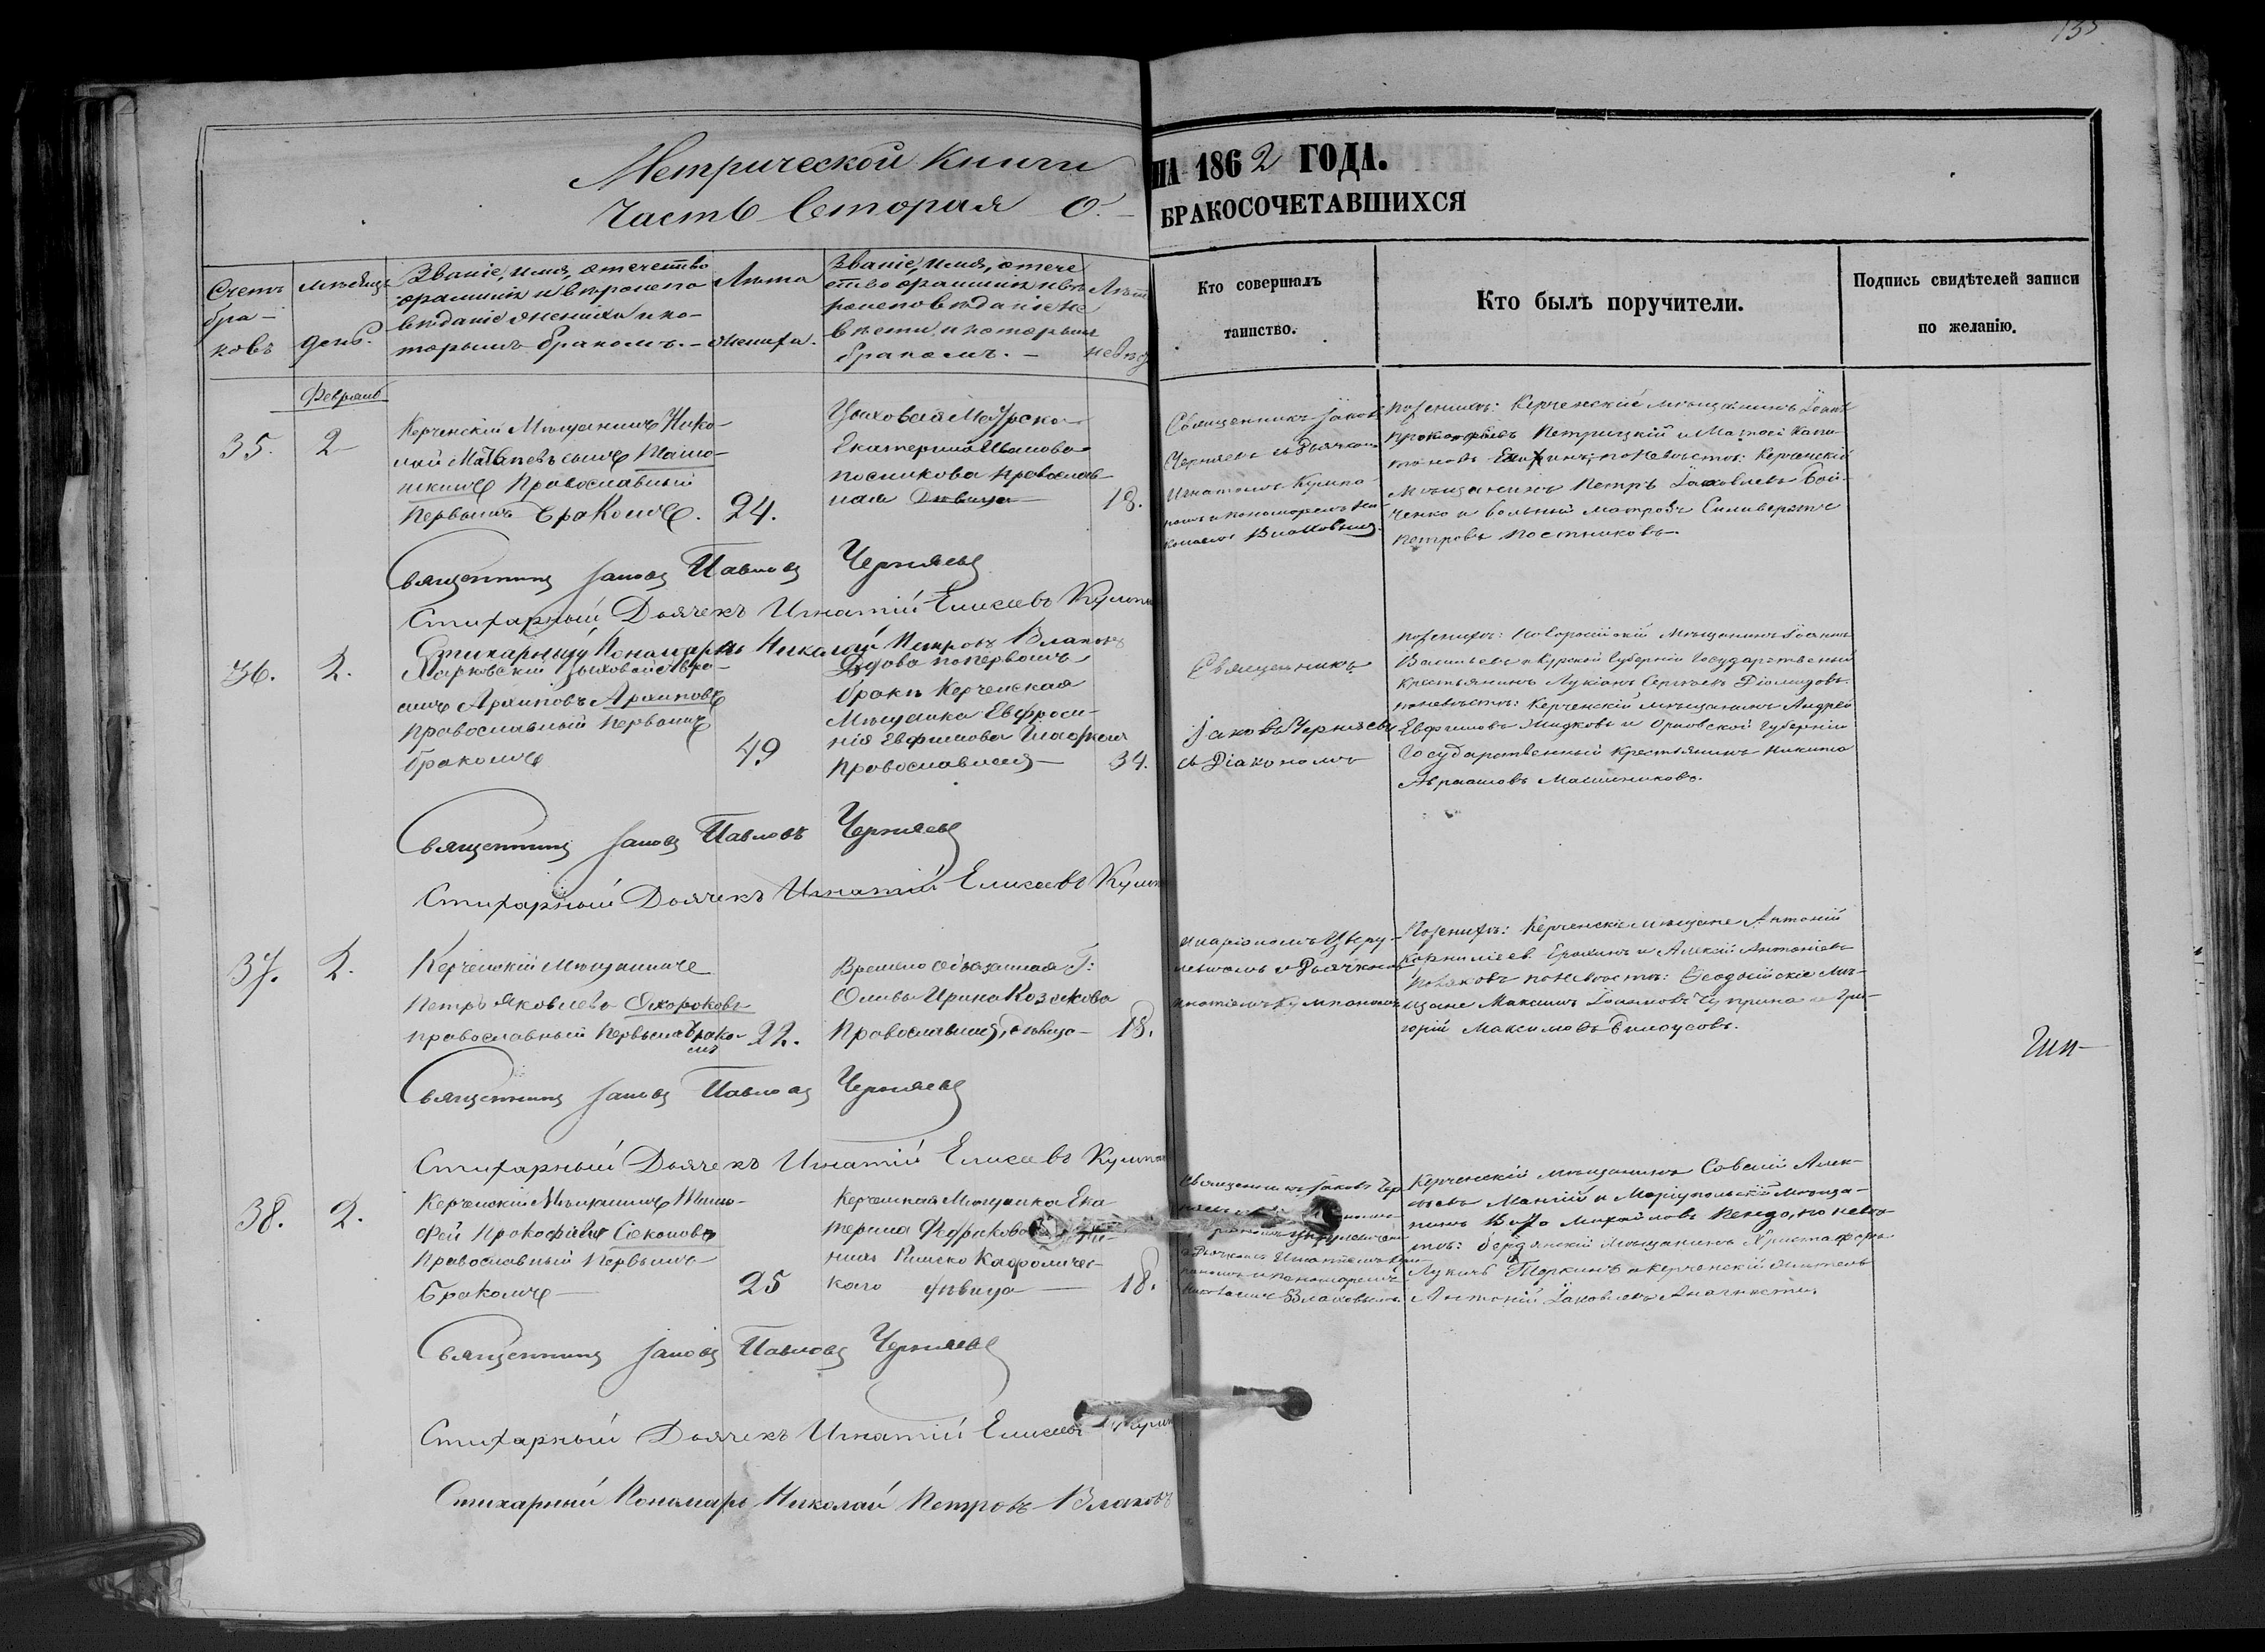 135
Метрической Книги
НА 1862 ГОДА.
Часть Вторая О.
БРАКОСОЧЕТАВШИХСЯ
Счетъ
бра-
ковъ
Мѣсяцъ
день.
Званіе, имя, отечество
фамилія и вѣроиспо
вѣданіе жениха и ко-
торымъ бракомъ.-
Лѣта
жениха.
Званіе, имя, отече
ство фамилія и вѣ
роисповѣданіе не
вѣсты и которымъ
бракомъ.-
Лѣта
невѣс
Кто совершалъ
таинство.
Кто былъ поручители.
Подпись свидѣтелей записи
по желанію.
Февраль
35.
2
Керченскій Мѣщанинъ Нико-
лай Матвѣевъ сынъ
Православный
Первымъ бракомъ.
24.
Екатерина Иванова
Посникова Православ-
ная Дѣвица
18.
Священникъ Іаковъ
Черняевъ и Дьячкомъ
Игнатомъ Кулпа-
номъ и пономаремъ Ни-
колаемъ Влаховымъ
По женихѣ: Керченскій мѣщанинъ Іоаннъ
Прокофьевъ Петрицкій и Матвей Капи-
тоновъ по невѣстѣ: Керченскій
Мѣщанинъ Петръ Іаковлевъ Бой-
ченко и вольный матрозъ Силиверстъ
Петровъ Постниковъ.
Священникъ Іаковъ Павловъ Черняевъ
Стихарный Дьячекъ Игнатій Елисеевъ Кулпа
Стихарный Пономарь Николай Петровъ Влаховъ
36.
2.
Харьковскій Цыховой Авра-
амъ Архиповъ Архиповъ
Православный Первымъ
бракомъ
49
Вдова по первомъ
бракѣ Керченская
Мѣщанка Евфроси-
нія Евфимова
Православная
34.
Священникъ
Іаковъ Черняевъ
съ Діакономъ
По женихѣ: Новоросійскій Мѣщанинъ Іоаннъ
Васильевъ и Курской Губерніи Государственный
Крестьянинъ Лукіанъ Сергѣевъ Діомидовъ.
по невѣстѣ: Керченскій мѣщанинъ Андрей
Евфимовъ Жидковъ и Орловской Губерніи
Государственный Крестьянинъ Никита
Авраамовъ Масленниковъ.
Священникъ Іаковъ Павловъ Черняевъ
Стихарный Дьячекъ Игнатій Елисеевъ Кулпа
37.
2.
Керченскій Мѣщанинъ
Петръ Яковлевъ Скороковъ
православный Первымъ Брако-
мъ
22.
Временно Обязанная Г:
Оливы Ирина Козокова
Православная, дѣвица
18.
Иларіономъ Церу-
левичомъ и Дьячкомъ
Игнатіемъ Кулпаномъ
По женихѣ: Керченскіе мѣщане Антоній
Корниліевъ Ерохинъ и Алексій Антоніевъ
Поляковъ по невѣстѣ: Феодосійскіе Мѣ-
щане Максимъ Іоанновъ Чуприна и Гри-
горій Максимовъ Билоусовъ.
Священникъ Іаковъ Павловъ Черняевъ
Стихарный Дьячекъ Игнатій Елисеевъ Кулпа
38.
2.
Керченскій Мѣщанинъ Тимо-
фей Прокофьевъ Соколовъ
Православный Первымъ
Бракомъ
25
Керченская Мѣщанка Ека
терина
Римско Кафоличес-
каго дѣвица
18.
Священникъ Іаковъ Чер
и Дьячкомъ Игнатіемъ
и пономаремъ
Николаемъ Влаховымъ.
Керченскій мѣщанинъ Савелій Алек-
и Маріупольскій Мѣща-
нинъ Михайловъ по невѣ-
стѣ: бердянскій Мѣщанинъ Христофоръ
Лукичъ и керченскій житель
Антоній Іаковлевъ
Священникъ Іаковъ Павловъ Черняевъ
Стихарный Дьячекъ Игнатій Елисеевъ
Стихарный Пономарь Николай Петровъ Влаховъ